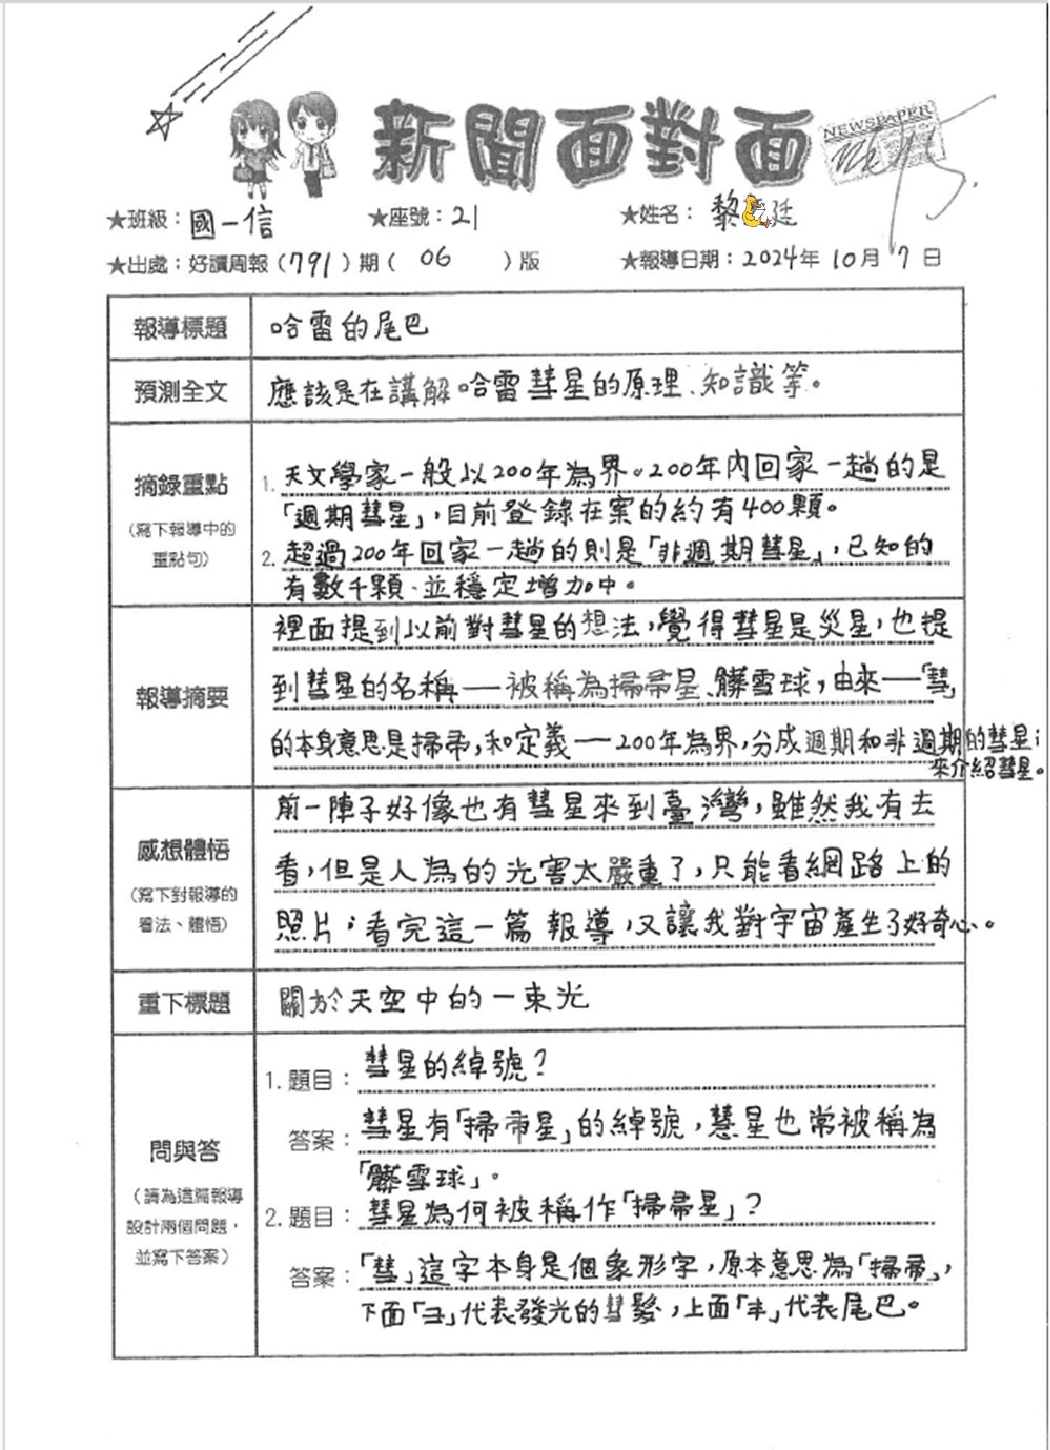 新聞面對面
NEWSPAPER
★班級：國一信 ★座號：21 ★姓名：黎 廷
★出處：好讀周報（791）期（ 06 ）版 ★報導日期：2024年10月7日
報導標題 哈雷的尾巴
預測全文 應該是在講解哈雷彗星的原理、知識等。
摘錄重點
（寫下報導中的
重點句）
1. 天文學家一般以200年為界。200年內回家一趟的是
「週期彗星」，目前登錄在案的約有400顆。
2. 超過200年回家一趟的則是「非週期彗星」，已知的
有數千顆、並穩定增加中。
報導摘要
裡面提到以前對彗星的想法，覺得彗星是災星，也提
到彗星的名稱——被稱為掃帚星、髒雪球，由來——「彗」
的本身意思是掃帚，和定義——200年為界，分成週期和非週期的彗星；
來介紹彗星。
感想體悟
（寫下對報導的
看法、體悟）
前一陣子好像也有彗星來到臺灣，雖然我有去
看，但是人為的光害太嚴重了，只能看網路上的
照片；看完這一篇報導，又讓我對宇宙產生了好奇心。
重下標題 關於天空中的一束光
問與答
（請為這篇報導
設計兩個問題，
並寫下答案）
1. 題目：彗星的綽號？
答案：彗星有「掃帚星」的綽號，慧星也常被稱為
「髒雪球」。
2. 題目：彗星為何被稱作「掃帚星」？
答案：「彗」這字本身是個象形字，原本意思為「掃帚」，
下面「彐」代表發光的彗髮，上面「丰」代表尾巴。